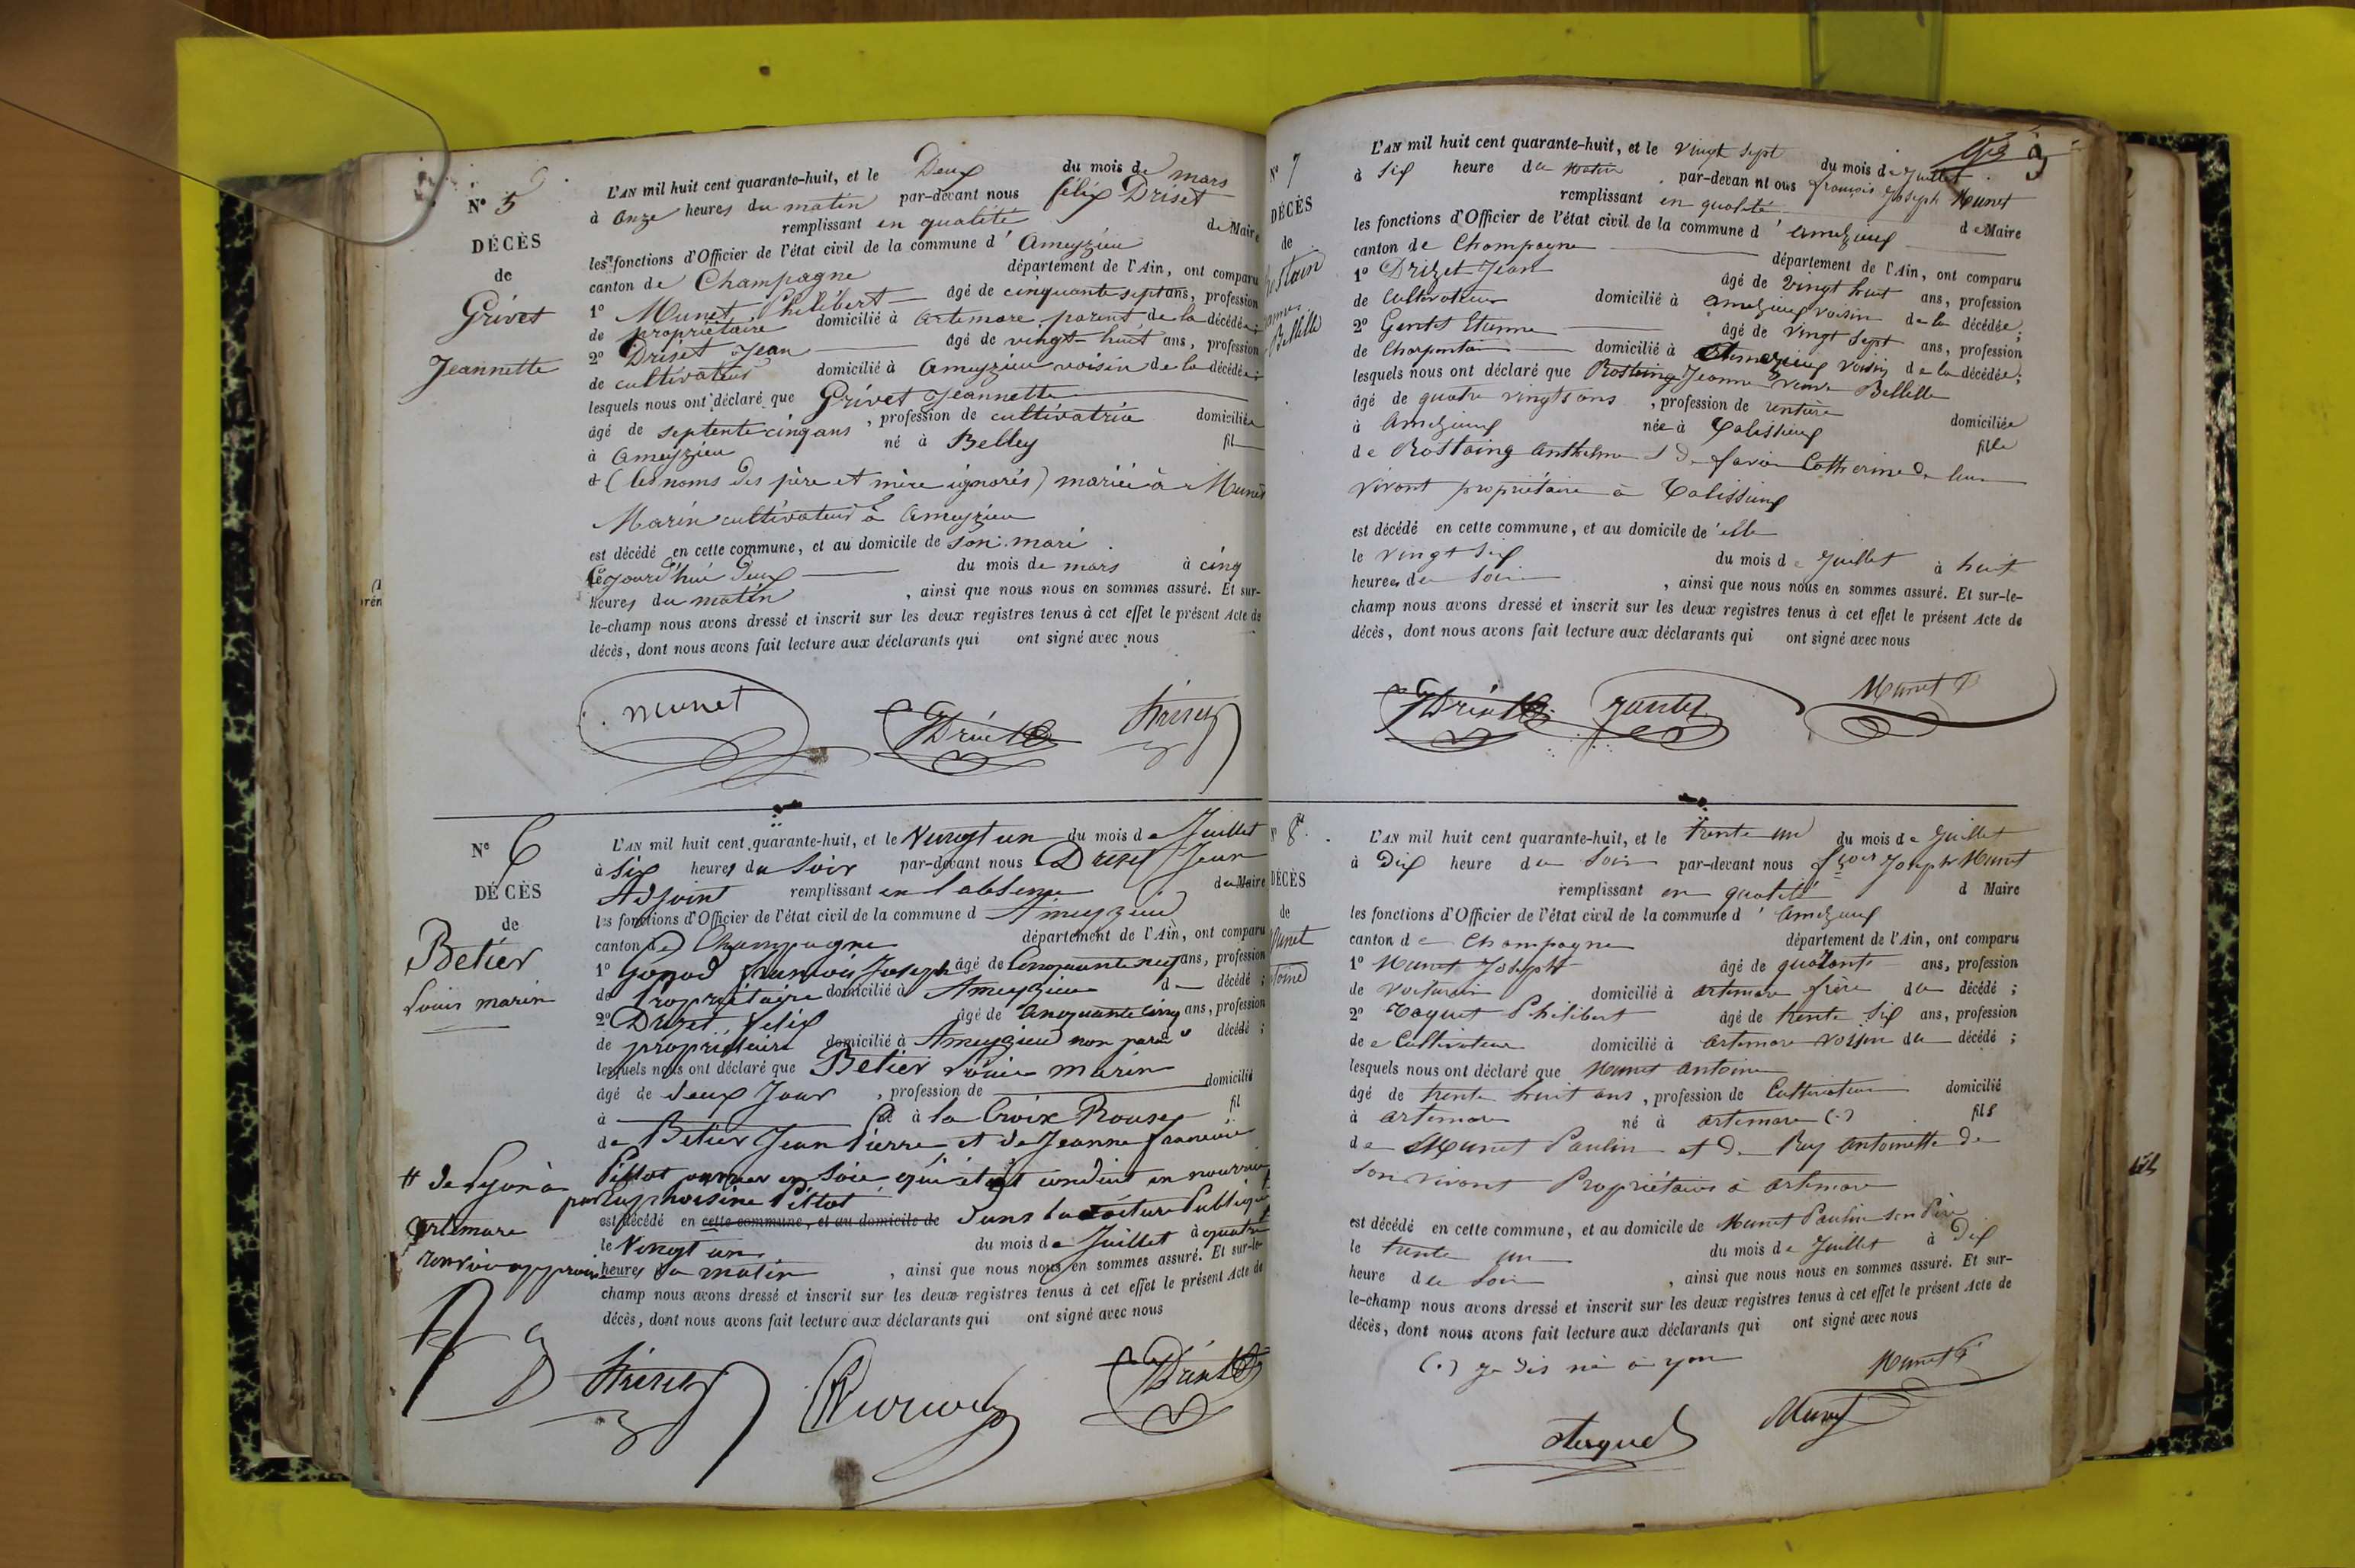 N° 5
DÉCÈS
de
Grivet
Jeannette
L'AN mil huit cent quarante-huit, et le Deux du mois de mars
à onze heures du matin par-devant nous félix Driset
remplissant en qualité de Maire
les fonctions d'Officier de l'état civil de la commune d' Ameyzieu
canton de Champagne département de l'Ain, ont comparu
1° Munet Philibert âgé de cinquante sept ans, profession
de propriétaire domicilié à Artemare parent de la décédée;
2° Driset Jean âgé de vingt-huit ans, profession
de cultivateur domicilié à Ameyzieu voisin de la décédée;
lesquels nous ont déclaré que Grivet Jeannette
âgé de septente cinq ans, profession de cultivatrice domiciliée
à Ameyzieu né à Belley fil
d (les noms des père et mère ignorés) mariée à Munet
Marin cultivateur à Ameyzieu
est décédé en cette commune, et au domicile de son mari
le jourd'hui deux du mois de mars à cinq
heures du matin, ainsi que nous nous en sommes assuré. Et sur-
le-champ nous avons dressé et inscrit sur les deux registres tenus à cet effet le présent Acte de
décès, dont nous avons fait lecture aux déclarants qui ont signé avec nous
munet
N° 6
DÉCÈS
de
Betier
Louis marin
L'AN mil huit cent quarante-huit, et le Vingt un du mois de Juillet
à six heures du soir par-devant nous Drizet Jean
Adjoint remplissant en l'absence du Maire
les fonctions d'Officier de l'état civil de la commune d Ameyzieu
canton de Champagne département de l'Ain, ont comparu
1° Gonod francois Joseph âgé de Cinquante neuf ans, profession
de Propriétaire domicilié à Ameyzieu d décédé;
2° Drizet félix âgé de cinquante cinq ans, profession
de propriétaire domicilié à Ameyzieu non parent décédé;
lesquels nous ont déclaré que Betier Louis marin
âgé de deux Jour, profession de domicilié
à né à la Croix Rousse fil
de Betier Jean Pierre et de Jeanne francoise
Pittot ouvrier en soie qui était conduit en nourrice
par Euphrosine Pittot
est décédé en cette commune, et au domicile de dans la voiture Publique #
le Vingt un du mois de Juillet à quatre
heures du matin, ainsi que nous nous en sommes assuré. Et sur-le-
champ nous avons dressé et inscrit sur les deux registres tenus à cet effet le présent Acte de
décès, dont nous avons fait lecture aux déclarants qui ont signé avec nous
# de Lyon à
artemare
renvoi approuvé
N° 7
DÉCÈS
de
Bellille
L'AN mil huit cent quarante-huit, et le vingt sept du mois de Juillet
à six heure du matin par-devan nt ous françois Joseph Munet
remplissant en qualité de Maire
les fonctions d'Officier de l'état civil de la commune d' amezieux
canton de Champagne département de l'Ain, ont comparu
1° Drizet Jean âgé de vingt huit ans, profession
de Cultivateur domicilié à amezieux voisin de la décédée;
2° Gentet Etienne âgé de vingt sept ans, profession
de Charpentier domicilié à voisin de la décédée;
lesquels nous ont déclaré que Rostaing Jeanne veuve Bellille
âgé de quatre vingts ans, profession de rentière domiciliée
à amezieux née à Talissieux fille
de Rostaing anthelme et de favre Catherine de leur
vivant propriétaire à Talissieux
est décédé en cette commune, et au domicile de elle
le vingt six du mois de Juillet à huit
heures du soir, ainsi que nous nous en sommes assuré. Et sur-le-
champ nous avons dressé et inscrit sur les deux registres tenus à cet effet le présent Acte de
décès, dont nous avons fait lecture aux déclarants qui ont signé avec nous
Munet
N° 8
DÉCÈS
de
Munet
L'AN mil huit cent quarante-huit, et le trente un du mois de Juillet
à Dix heure du soir par-devant nous fçois Joseph Munet
remplissant en qualité d Maire
les fonctions d'Officier de l'état civil de la commune d' amezieux
canton de Champagne département de l'Ain, ont comparu
1° Munet Joseph âgé de quarante ans, profession
de voiturier domicilié à artemare frère du décédé;
2° Toquet Philibert âgé de trente six ans, profession
de Cultivateur domicilié à artemare voisin du décédé;
lesquels nous ont déclaré que Munet antoine
âgé de trente huit ans, profession de Cultivateur domicilié
à artemare né à artemare (.) fils
de Munet Paulin et de Rey antoinette de
son vivant Propriétaire à artemare
est décédé en cette commune, et au domicile de Munet Paulin son père
le trente un du mois de Juillet à Dix
heure du soir, ainsi que nous nous en sommes assuré. Et sur-
le-champ nous avons dressé et inscrit sur les deux registres tenus à cet effet le présent Acte de
décès, dont nous avons fait lecture aux déclarants qui ont signé avec nous
(.) je dis né à yon
Munet
Munet